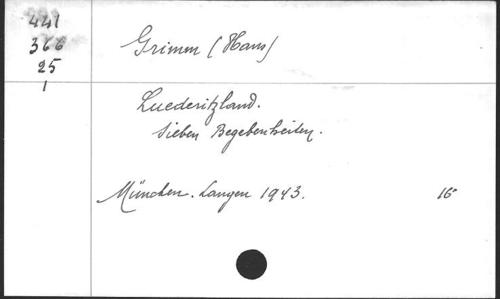 441
366
25
1
Grimm (Hans)
Luederitzland.
Sieben Begebenheiten.
München. Langen 1943. 16°